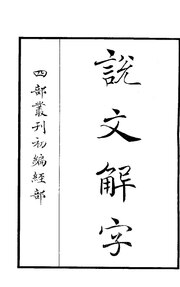 說文解字
四部叢刊初編經部